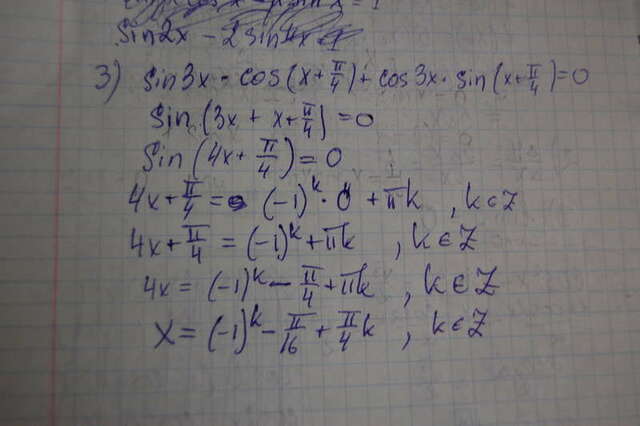 sin2x - 2sin4x
3) sin3x · cos(x+π/4) + cos3x · sin(x+π/4) = 0
sin(3x + x + π/4) = 0
sin(4x + π/4) = 0
4x + π/4 = (-1)^k · 0 + πk , k∈Z
4x + π/4 = (-1)^k + πk , k∈Z
4x = (-1)^k - π/4 + πk , k∈Z
x = (-1)^k - π/16 + π/4 k , k∈Z